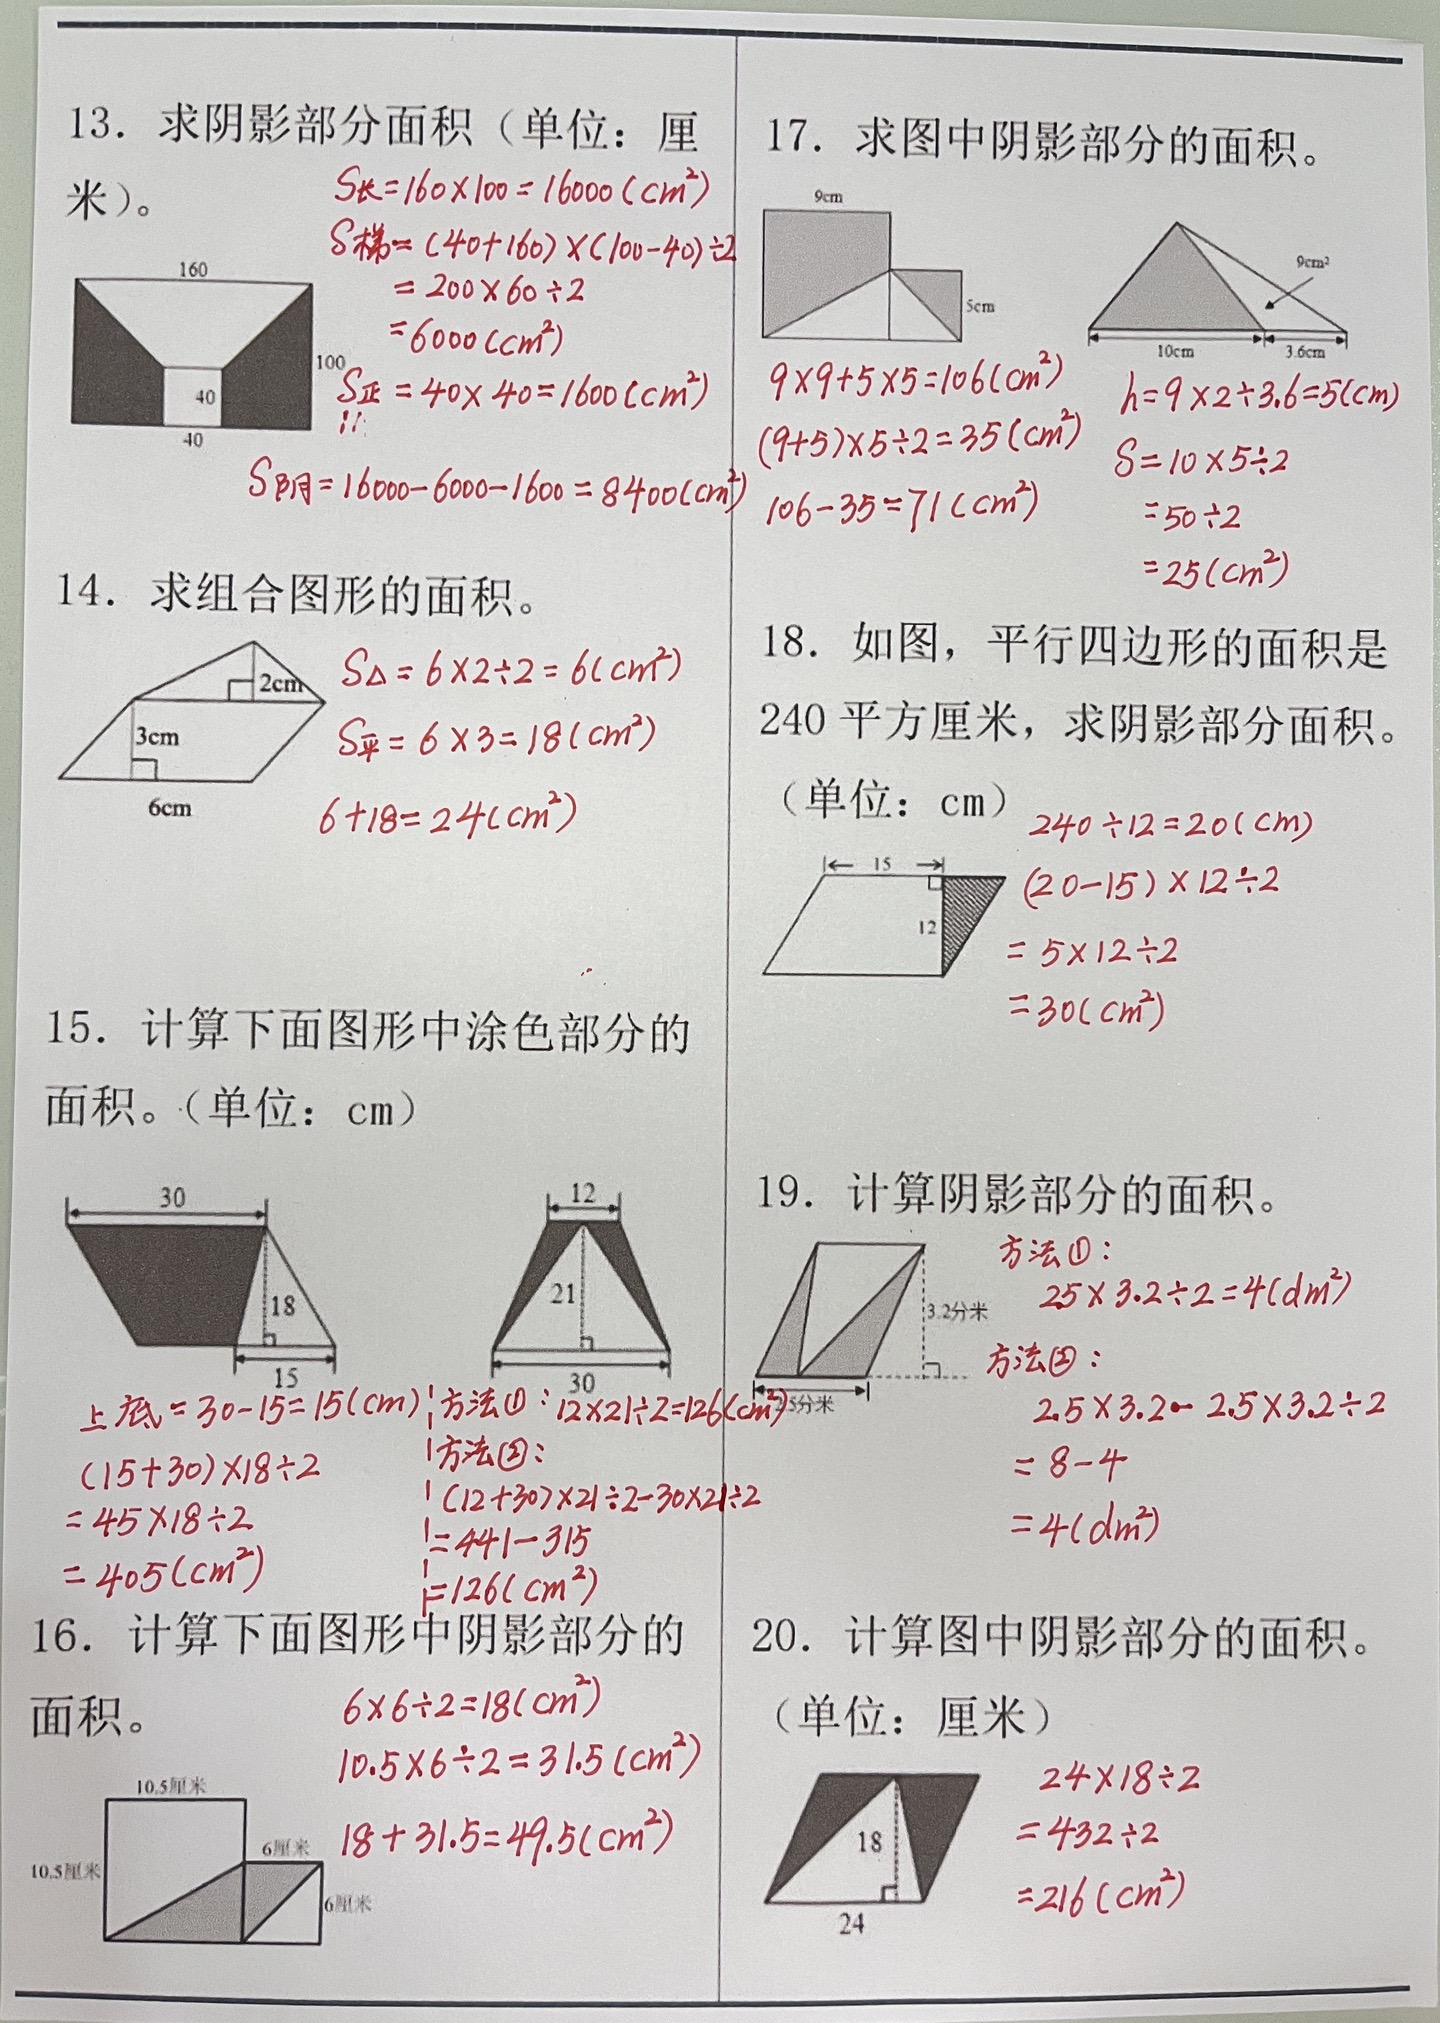 13. 求阴影部分面积（单位：厘
米）。
S长=160×100=16000(cm²)
S梯=(40+160)×(100-40)÷2
=200×60÷2
=6000(cm²)
S正=40×40=1600(cm²)
S阴=16000-6000-1600=8400(cm²)
160
100
40
40
14. 求组合图形的面积。
S△=6×2÷2=6(cm²)
S平=6×3=18(cm²)
6+18=24(cm²)
2cm
3cm
6cm
15. 计算下面图形中涂色部分的
面积。（单位：cm）
30
18
15
12
21
30
上底=30-15=15(cm)
(15+30)×18÷2
=45×18÷2
=405(cm²)
方法①：12×21÷2=126(cm²)
方法②：
(12+30)×21÷2-30×21÷2
=441-315
=126(cm²)
16. 计算下面图形中阴影部分的
面积。
6×6÷2=18(cm²)
10.5×6÷2=31.5(cm²)
18+31.5=49.5(cm²)
10.5厘米
10.5厘米
6厘米
6厘米
17. 求图中阴影部分的面积。
9cm
5cm
9cm²
10cm
3.6cm
9×9+5×5=106(cm²)
(9+5)×5÷2=35(cm²)
106-35=71(cm²)
h=9×2÷3.6=5(cm)
S=10×5÷2
=50÷2
=25(cm²)
18. 如图，平行四边形的面积是
240平方厘米，求阴影部分面积。
（单位：cm）
240÷12=20(cm)
(20-15)×12÷2
=5×12÷2
=30(cm²)
15
12
19. 计算阴影部分的面积。
方法①：
25×3.2÷2=4(dm²)
方法②：
2.5×3.2-2.5×3.2÷2
=8-4
=4(dm²)
3.2分米
20. 计算图中阴影部分的面积。
（单位：厘米）
24×18÷2
=432÷2
=216(cm²)
18
24